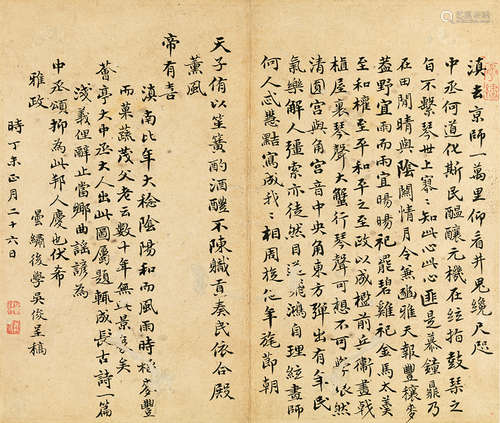 滇去京師一萬里仰看井鬼纔尺咫
中丞何道化斯民醞釀元機在絃指鼓琴之
旨不繫琴世上寥寥知此心此心匪是慕鐘鼎乃
在田間晴與陰關情月令兼豳雅天報豐穰麥
蓋野宜雨而雨宜暘暘祀罷碧雞祀金馬太羮
至和權至平和平之至政以成檻前兵衛畫戟
植屋裏琴聲大蟹行琴聲可想不可學依然
清圓宮與角宮音中央角東方彈出有年民
氣樂解人彊索亦徒然目送飛鴻自理絃畫師
何人忒慧點寫成我相周旋他年旌節朝
天子侑以笙簧酌酒醴不陳鐵首奏民依合殿
薰風
帝有喜
滇南比年大稔陰陽和而風雨時麥豐
而菓蔬茂父老云數十年無此景矣
薈亭大中丞大人出此圖屬題輒成長古詩一篇
淺義俚辭止當鄉曲謡諺為
中丞頌抑為此邦人慶也伏希
雅政
時丁未正月二十六日
曇繡後學吳俊呈稿